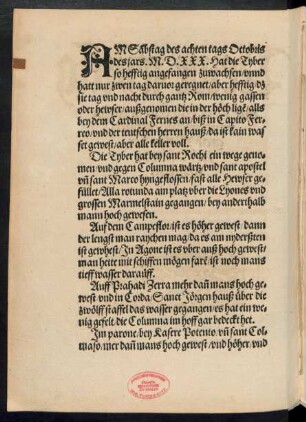 AM Sābstag des achten tags Octobris
des jars. M. D. XXX. Hat die Tyber
so hefftig angefangen zuwachsen/ vnnd
hatt nur zwen tag daruor geregnet/ aber hefftig/ dz
sie tag vnd nacht durch gantz Rom/ wenig gassen
oder hewser/ außgenomen die in der höch ligē/ alls
bey dem Cardinal Fernes an/ biß in Capito Fer-
ro/ vnd der teutschen herren hauß/ da ist kain was
ser gewest/ aber alle keller voll.
Die Tyber hat bey sant Rochi ein wege geno-
men/ vnd gegen Columna wärtz/ vnd sant apostel
vñ sant Marco hyngeflossen/ fast alle Hewser ge-
füllet/ Alla rotunda am platz/ vber die Lyones vnd
grossen Marmelstain gegangen/ bey anderthalb
mann hoch gewesen.
Auf dem Campeflor/ ist es höher gewest dann
der lengst man raychen mag/ da es am mydersten
ist gewest/ In Agone ist es vber auß hoch gewest/
man hette mit schiffen mögen farē/ ist noch mans
tieff wasser darauff.
Auff Prahadi Zerra mehr dañ mans hoch ge-
west/ vnd in Corda/ Sanct Jörgen hauß/ über die
zwölff staffel das wasser gegangen/ es hat ein we-
nig gefelt/ die Columna im hoff gar bedeckt het.
Im parone/ bey Kasere Potento/ vñ sant Col-
maso/ mer dañ mans hoch gewest/ vnd höher/ vnd